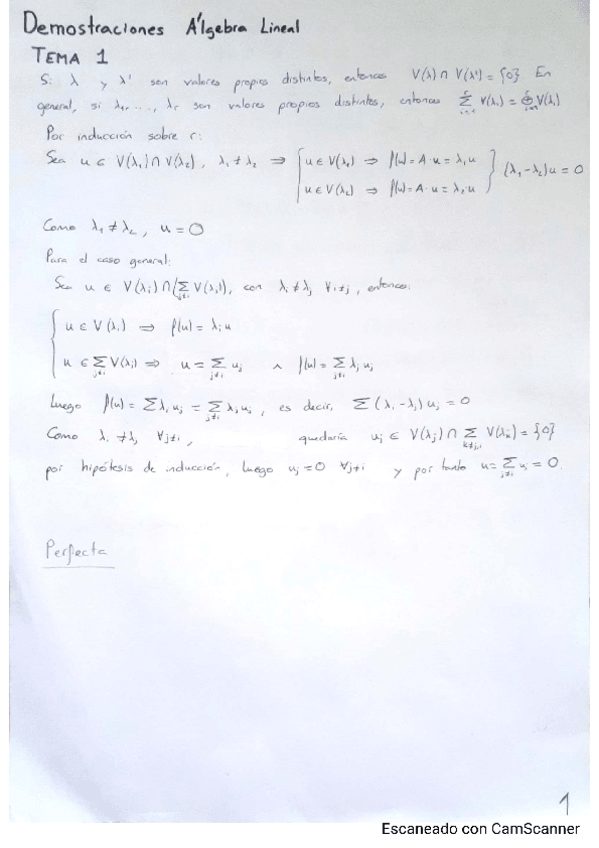 Demostraciones Álgebra Lineal
TEMA 1
Si λ y λ' son valores propios distintos, entonces V(λ) ∩ V(λ') = {0} En
general, si λ₁, ..., λᵣ son valores propios distintos, entonces Σ V(λᵢ) = ⊕ V(λᵢ)
Por inducción sobre r:
Sea u ∈ V(λ₁) ∩ V(λ₂), λ₁ ≠ λ₂ ⇒ { u ∈ V(λ₁) ⇒ f(u) = A·u = λ₁u
u ∈ V(λ₂) ⇒ f(u) = A·u = λ₂u } (λ₁ - λ₂)u = 0
Como λ₁ ≠ λ₂, u = 0
Para el caso general:
Sea u ∈ V(λᵢ) ∩ (Σ_{j≠i} V(λⱼ)), con λᵢ ≠ λⱼ ∀i≠j, entonces:
{ u ∈ V(λᵢ) ⇒ f(u) = λᵢu
u ∈ Σ_{j≠i} V(λⱼ) ⇒ u = Σ_{j≠i} uⱼ ∧ f(u) = Σ_{j≠i} λⱼuⱼ
Luego f(u) = Σ λᵢuⱼ = Σ_{j≠i} λⱼuⱼ, es decir, Σ (λᵢ - λⱼ) uⱼ = 0
Como λᵢ ≠ λⱼ ∀j≠i, quedaría uⱼ ∈ V(λⱼ) ∩ Σ_{k≠j,i} V(λₖ) = {0}
por hipótesis de inducción, luego uⱼ = 0 ∀j≠i y por tanto u = Σ_{j≠i} uⱼ = 0.
Perfecta
1
Escaneado con CamScanner